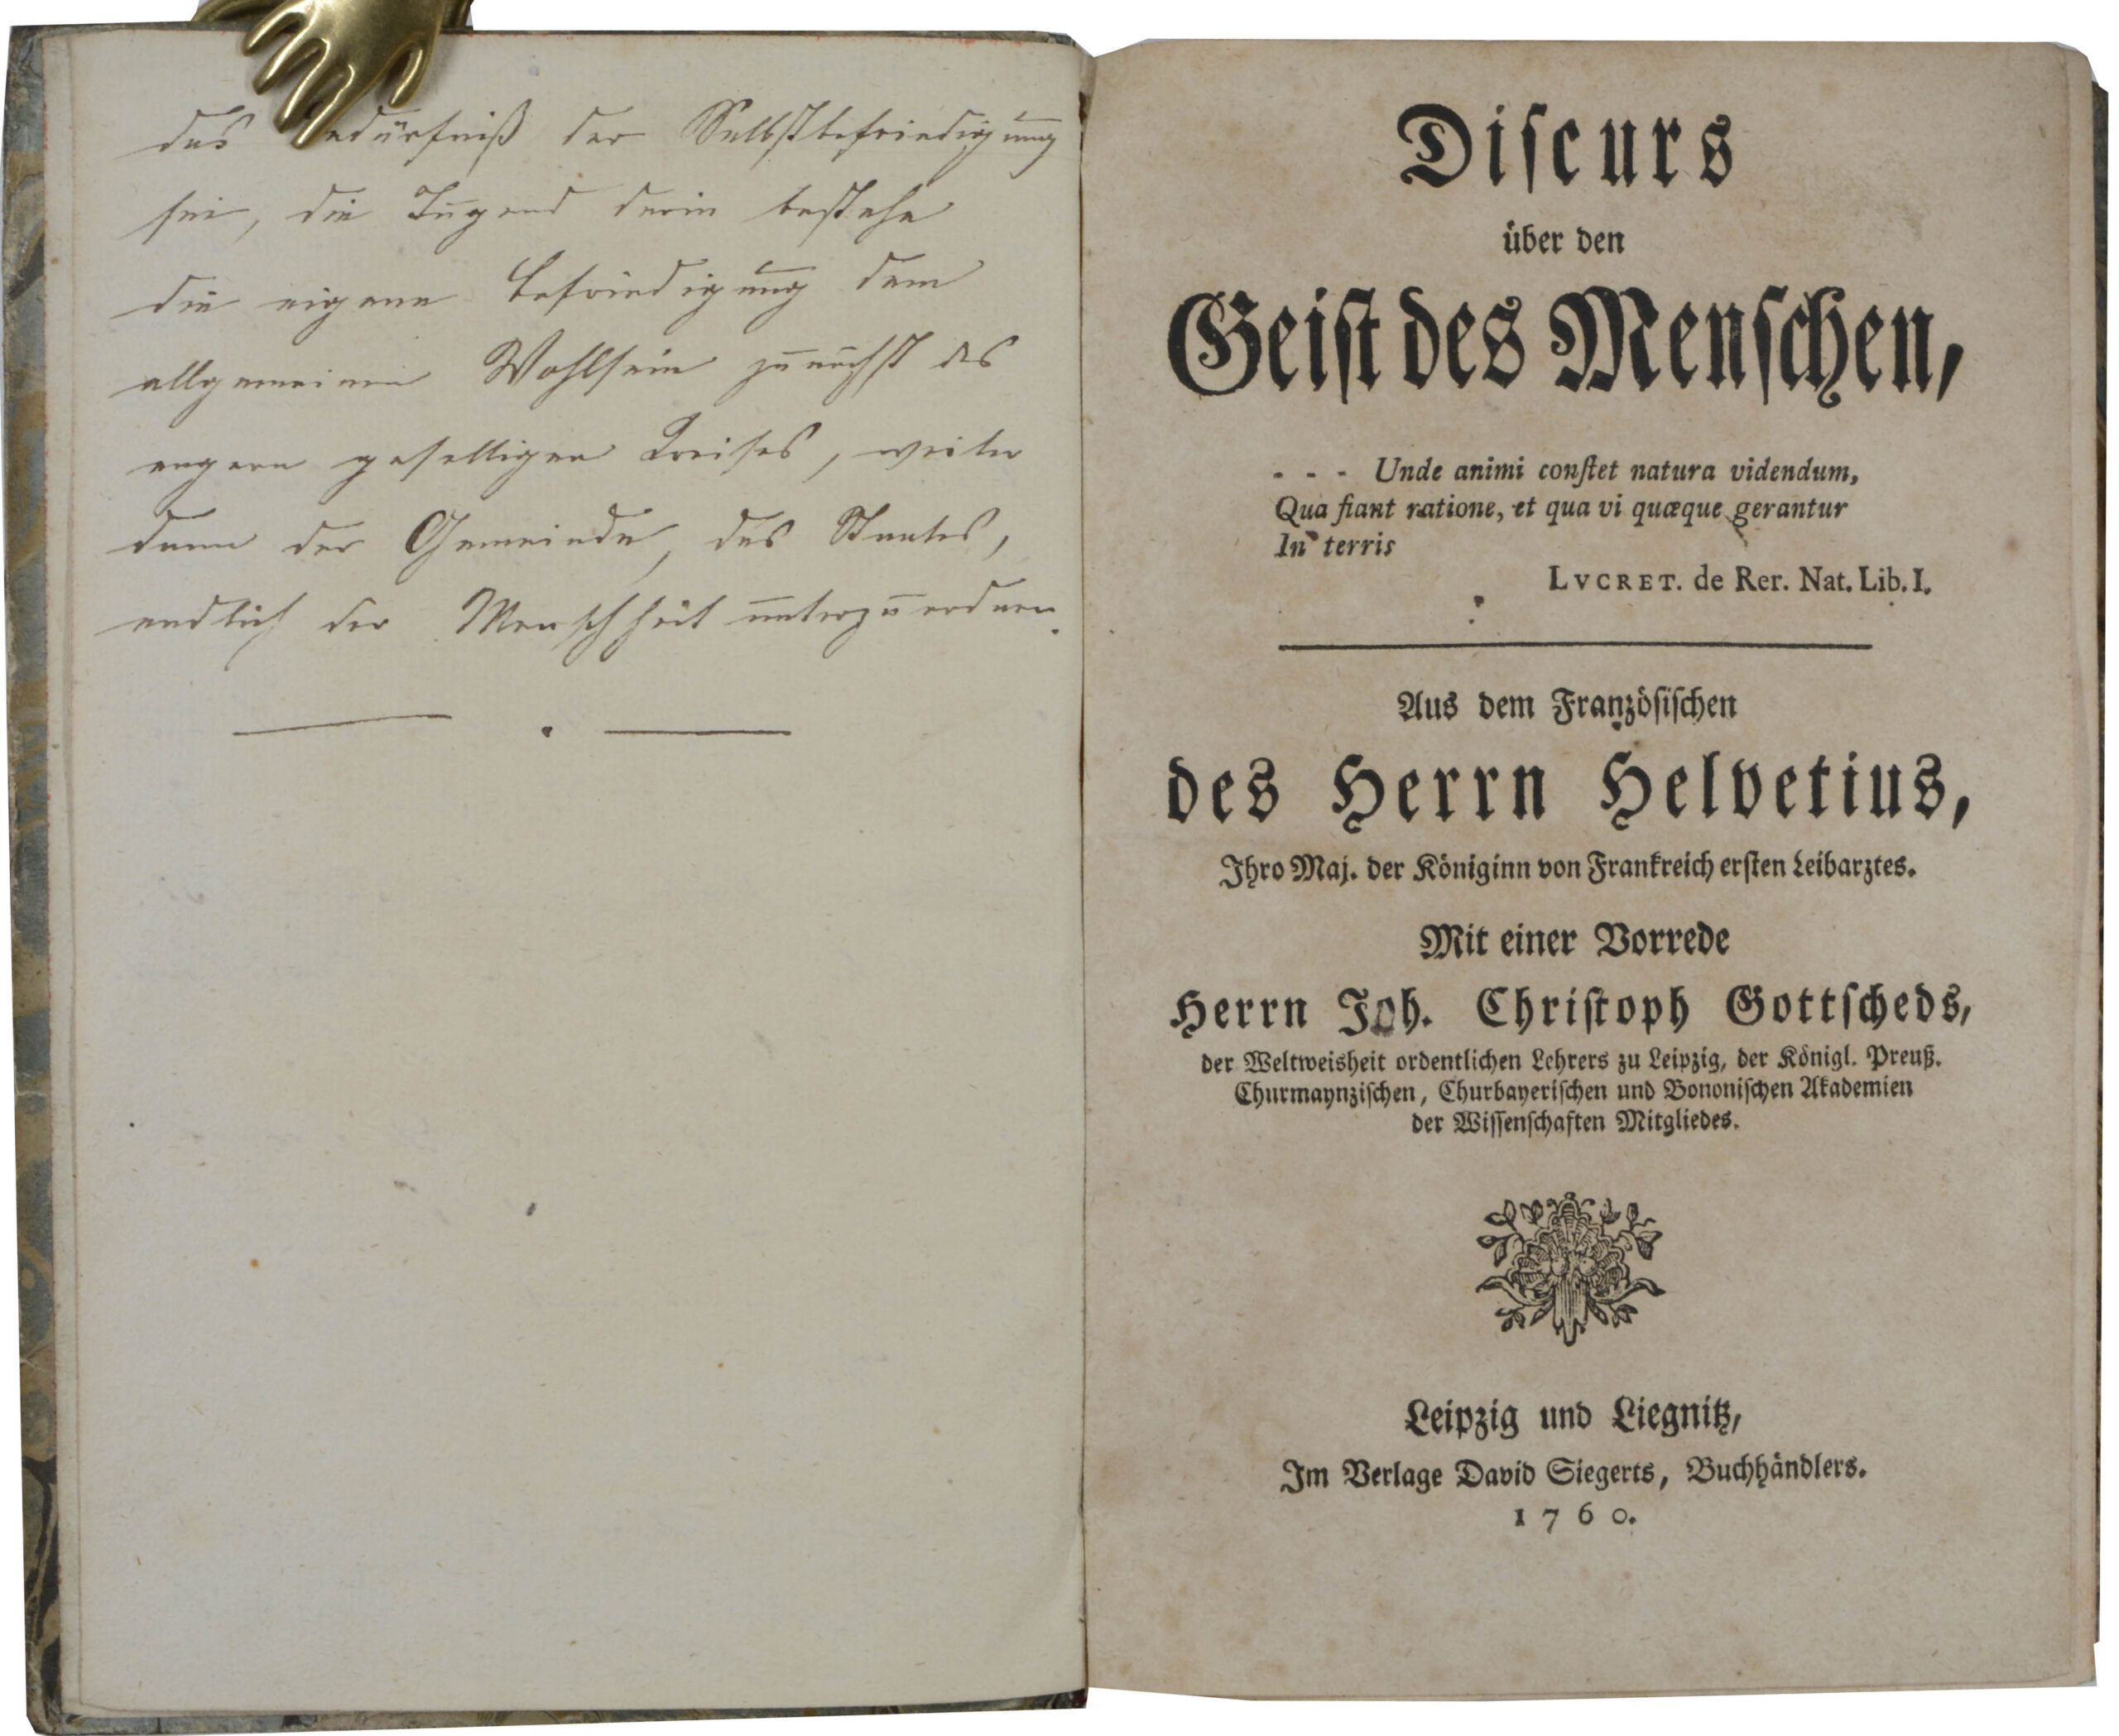 das Bedürfniß der Selbstbefriedigung
sei, die Tugend darin bestehe
die eigene Befriedigung dem
allgemeinen Wohlsein zunächst des
engern geselligen Kreises, weiter
dann der Gemeinde, des Staates,
endlich der Menschheit unterzuordnen.
Diſcurs
über den
Geiſt des Menſchen,
- - - Unde animi conſtet natura videndum,
Qua fiant ratione, et qua vi quæque gerantur
In terris
LVCRET. de Rer. Nat. Lib. I.
Aus dem Franzöſiſchen
des Herrn Helvetius,
Ihro Maj. der Königinn von Frankreich erſten Leibarztes.
Mit einer Vorrede
Herrn Joh. Chriſtoph Gottſcheds,
der Weltweisheit ordentlichen Lehrers zu Leipzig, der Königl. Preuß.
Churmaynziſchen, Churbayeriſchen und Bononiſchen Akademien
der Wiſſenſchaften Mitgliedes.
Leipzig und Liegnitz,
Im Verlage David Siegerts, Buchhändlers.
1760.